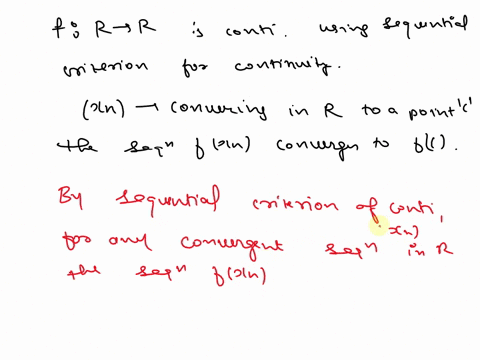 f: R→R is conti. using sequential
criterion for continuity.
(xn) → convering in R to a point 'c'
the seqⁿ f(xn) converges to f(c).
By sequential criterion of conti,
for any convergent seqⁿ (xn) in R
the seqⁿ f(xn)